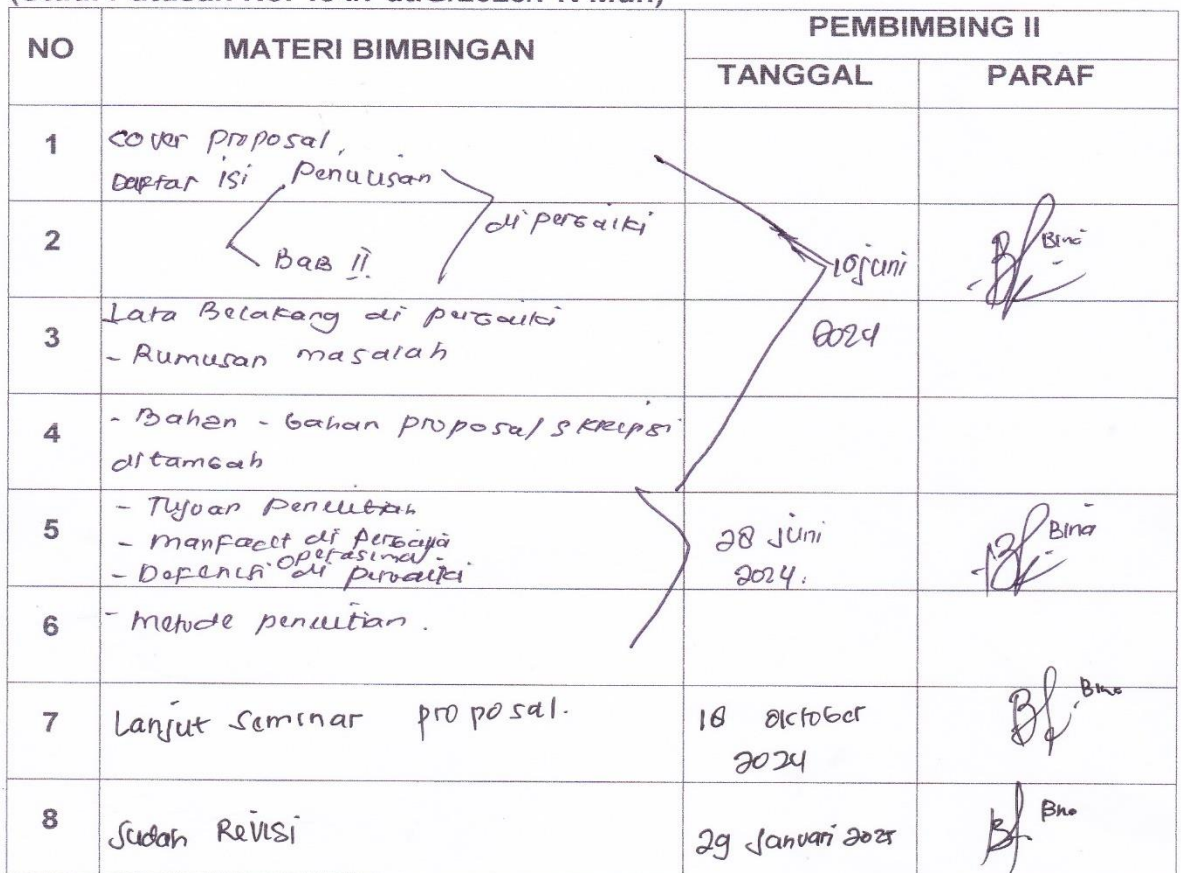 NO MATERI BIMBINGAN PEMBIMBING II
TANGGAL PARAF
1 cover proposal,
Daftar isi Penulisan
2 di perbaiki
Bab II
10 juni
Bina
3 Lata Belakang di perbaiki
- Rumusan masalah
2024
4 - Bahan - bahan proposal skripsi
ditambah
5 - Tujuan Penelitian
- Manfaat di Perbaiki
- Defenisi operasional di perbaiki
28 Juni
2024.
Bina
6 - Metode penelitian.
7 Lanjut Seminar proposal.
18 Oktober
2024
Bina
8 Sudah Revisi
29 Januari 2025
Bina